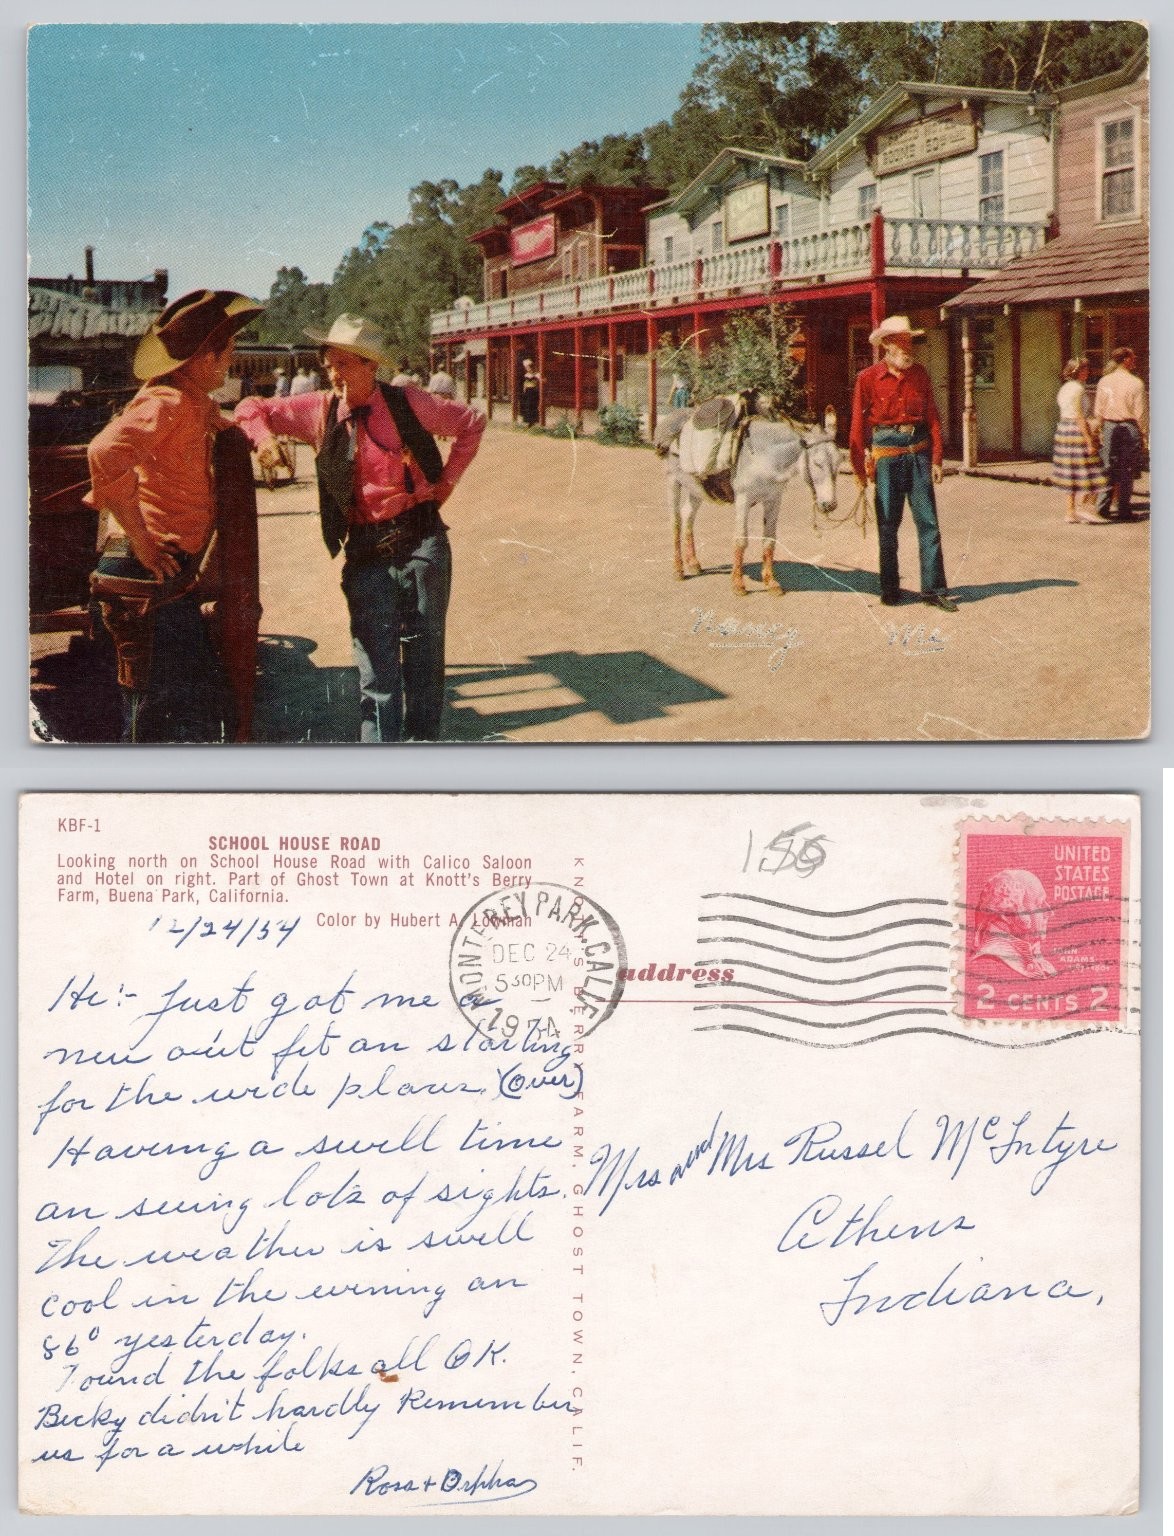 Nancy Me
KBF-1
SCHOOL HOUSE ROAD
Looking north on School House Road with Calico Saloon
and Hotel on right. Part of Ghost Town at Knott's Berry
Farm, Buena Park, California.
Color by Hubert A. Lowman
12/24/54
Hi:- Just got me a
new outfit an starting
for the wide places. (Over)
Having a swell time
an seeing lots of sights.
The weather is swell
cool in the evening an
86° yesterday.
Found the folks all OK.
Becky didn't hardly Remember
us for a while
Ross + Orpha
KNOTT'S BERRY FARM, GHOST TOWN, CALIF.
MONTEREY PARK, CALIF.
DEC 24
5 30 PM
1954
address
UNITED
STATES
POSTAGE
JOHN
ADAMS
2 CENTS 2
Mrs and Mrs Russel McIntyre
Athens
Indiana,